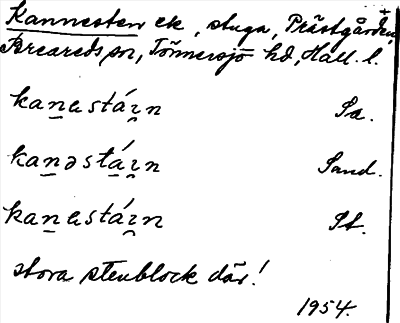 Kannesten ek, stuga, Prästgården,
Breareds sn, Tönnersjö hd, Hall. l.
kanastáın Sa.
kanəstáın Sand.
kanastáın St.
stora stenblock där!
1954.